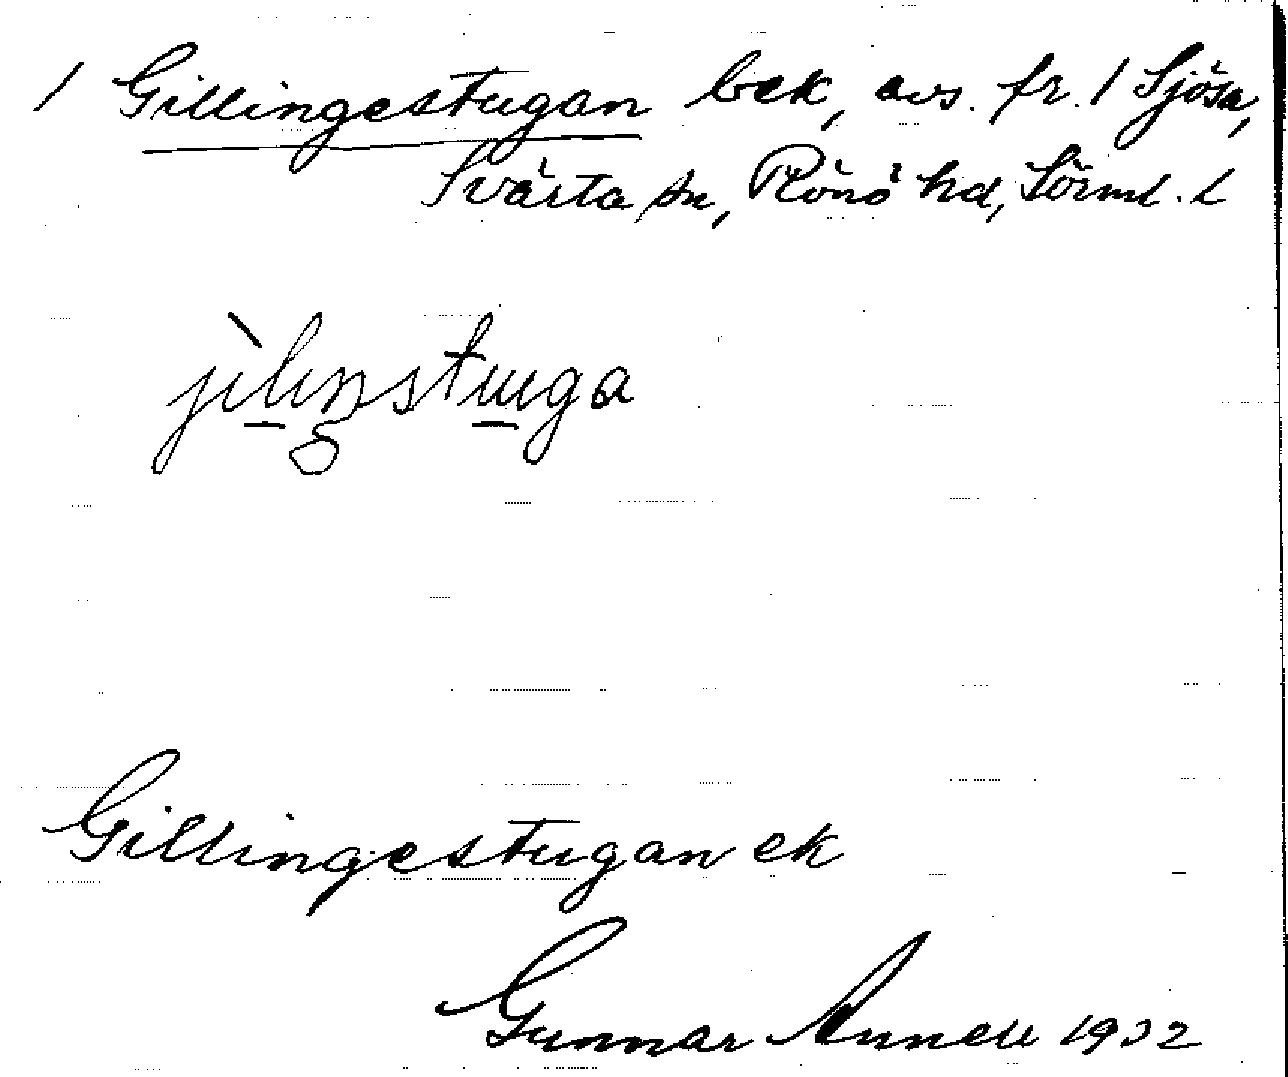 / Gillingestugan bek, avs. fr. / Sjösa,
Svärta sn, Rönö hd, Sörml. l
jìliŋstuga
Gillingestugan ek
Gunnar Annell 1932